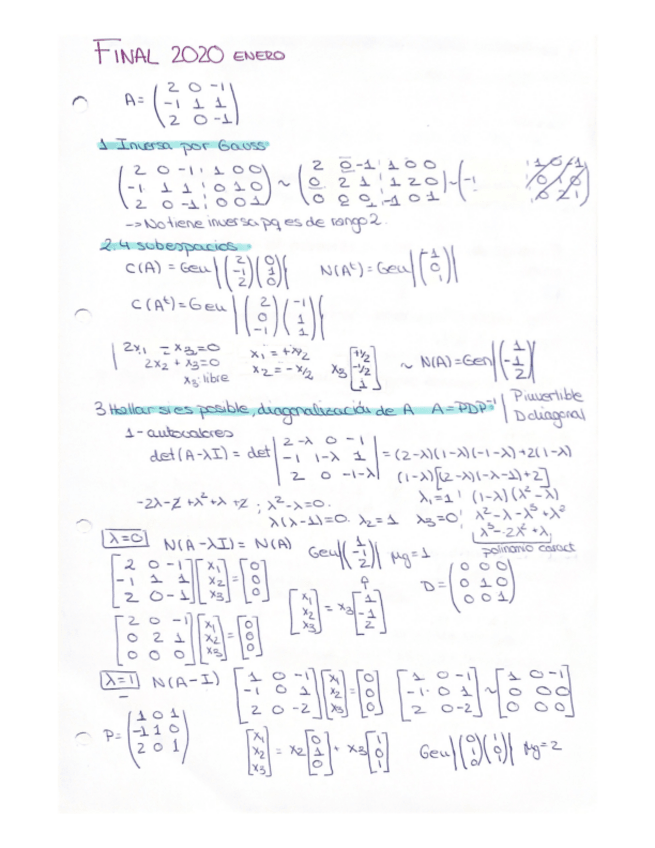 FINAL 2020 ENERO
A = (2 0 -1; -1 1 1; 2 0 -1)
1 Inversa por Gauss
(2 0 -1 | 1 0 0; -1 1 1 | 0 1 0; 2 0 -1 | 0 0 1) ~ (2 0 -1 | 1 0 0; 0 2 1 | 1 2 0; 0 0 0 | -1 0 1) ~ (-1
-> No tiene inversa pq es de rango 2.
2. 4 subespacios
C(A) = Gen{(2 -1 2)(0 1 0)} N(Aᵗ) = Gen{(-1 0 1)}
C(Aᵗ) = Gen{(2 0 -1)(-1 1 1)}
2x₁ - x₃ = 0 x₁ = +x/2
2x₂ + x₃ = 0 x₂ = -x/2 x₃ [+1/2 -1/2 1] ~ N(A) = Gen{(1 -1 2)}
x₃ libre
3 Hallar si es posible, diagonalización de A A = PDP⁻¹ P invertible
D diagonal
1- autovalores
det(A-λI) = det |2-λ 0 -1; -1 1-λ 1; 2 0 -1-λ| = (2-λ)(1-λ)(-1-λ)+2(1-λ)
(1-λ)[(2-λ)(-λ-1)+2]
-2λ-2+λ²+λ+2 ; λ²-λ=0. λ₁=1 ; (1-λ)(λ²-λ)
λ(λ-1)=0. λ₂=1 λ₃=0 ; λ²-λ-λ³+λ²
λ³-2λ²+λ
polinomio caract
λ=0 N(A-λI) = N(A) Gen{(1 -1 2)} Mg=1
[2 0 -1; -1 1 1; 2 0 -1][x₁ x₂ x₃] = [0 0 0] [x₁ x₂ x₃] = x₃[1 -1 2] P D = (0 0 0; 0 1 0; 0 0 1)
[2 0 -1; 0 2 1; 0 0 0][x₁ x₂ x₃] = [0 0 0]
λ=1 N(A-I) [1 0 -1; -1 0 1; 2 0 -2][x₁ x₂ x₃] = [0 0 0] [1 0 -1; -1 0 1; 2 0 -2] ~ [1 0 -1; 0 0 0; 0 0 0]
P = (1 0 1; -1 1 0; 2 0 1) [x₁ x₂ x₃] = x₂[0 1 0] + x₃[1 0 1] Gen{(0 1 0)(1 0 1)} Mg=2